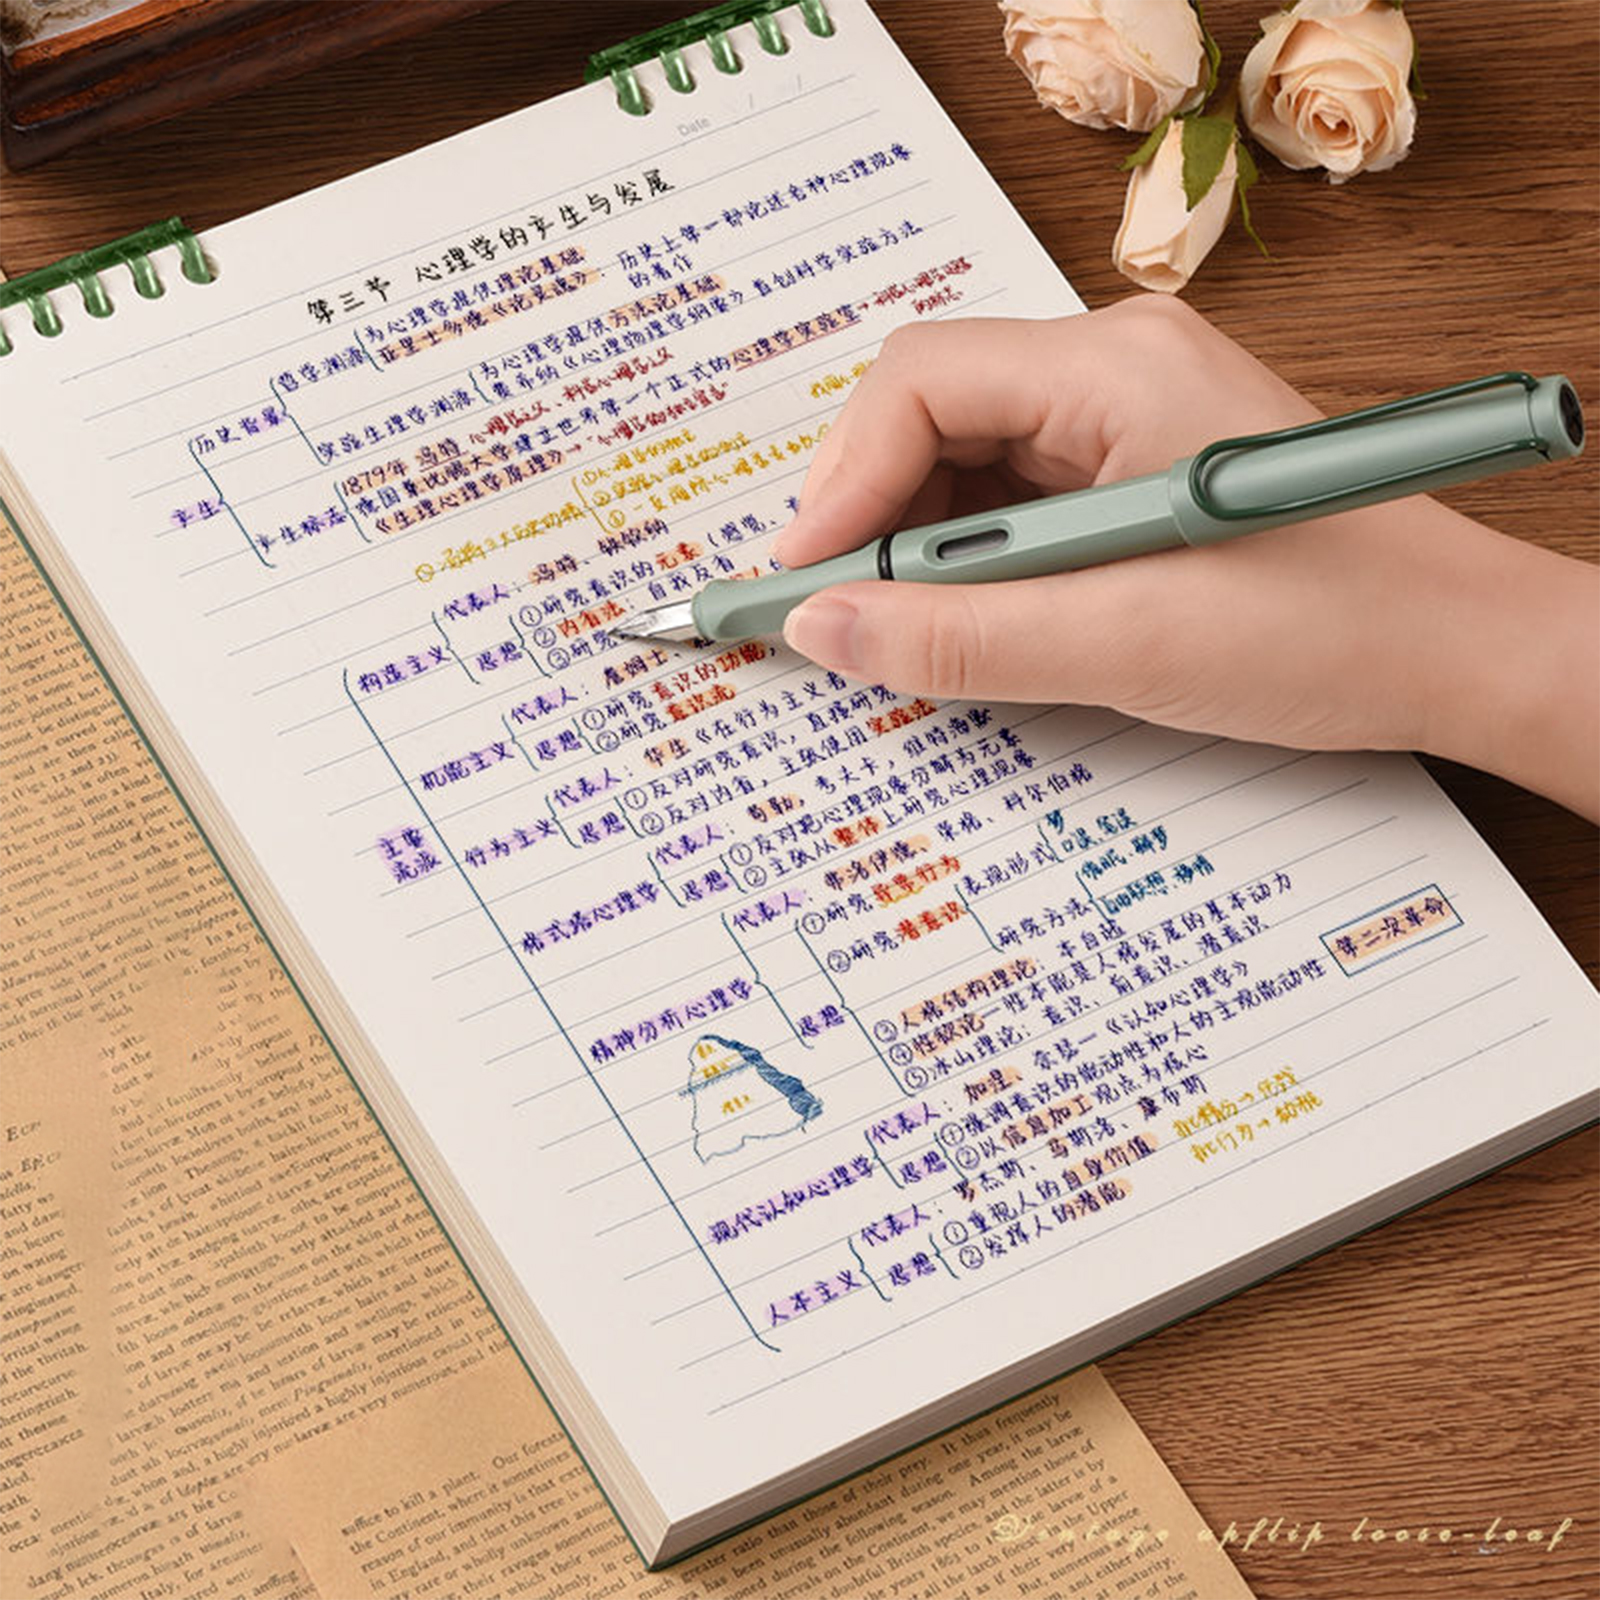 Date / /
第三节 心理学的产生与发展
产生
历史背景
哲学渊源
为心理学提供理论基础
亚里士多德《论灵魂》: 历史上第一部论述各种心理现象的著作
实验生理学渊源
为心理学提供方法论基础
费希纳《心理物理学纲要》首创科学实验方法
产生标志
1879年 冯特 心理学之父、科学心理学之父
德国莱比锡大学建立世界第一个正式的心理学实验室→科学心理学的
《生理心理学原理》→"心理学的独立宣言"
主要流派
构造主义
代表人: 冯特、铁钦纳
思想
①研究意识的元素(感觉、
②内省法: 自我反省
③研究
机能主义
代表人: 詹姆士、
思想
①研究意识的功能,
②研究意识流
行为主义
代表人: 华生《在行为主义者
思想
①反对研究意识, 直接研究
②反对内省, 主张使用实验法
格式塔心理学
代表人: 苛勒, 考夫卡, 维特海默
思想
①反对把心理现象分解为元素
②主张从整体上研究心理现象
精神分析心理学
代表人: 弗洛伊德、荣格、科尔伯格
思想
①研究异常行为
②研究潜意识
表现形式
梦
口误、笔误
研究方法
催眠、释梦
自由联想、移情
③人格结构理论: 本自超
④性欲论—性本能是人格发展的基本动力
⑤冰山理论: 意识、前意识、潜意识
现代认知心理学
代表人: 加涅、奈瑟—《认知心理学》
思想
①强调意识的能动性和人的主观能动性
②以信息加工观点为核心
第二次革命
人本主义
代表人: 罗杰斯、马斯洛、康布斯
思想
①重视人的自身价值
②发挥人的潜能
vintage upflip loose-leaf